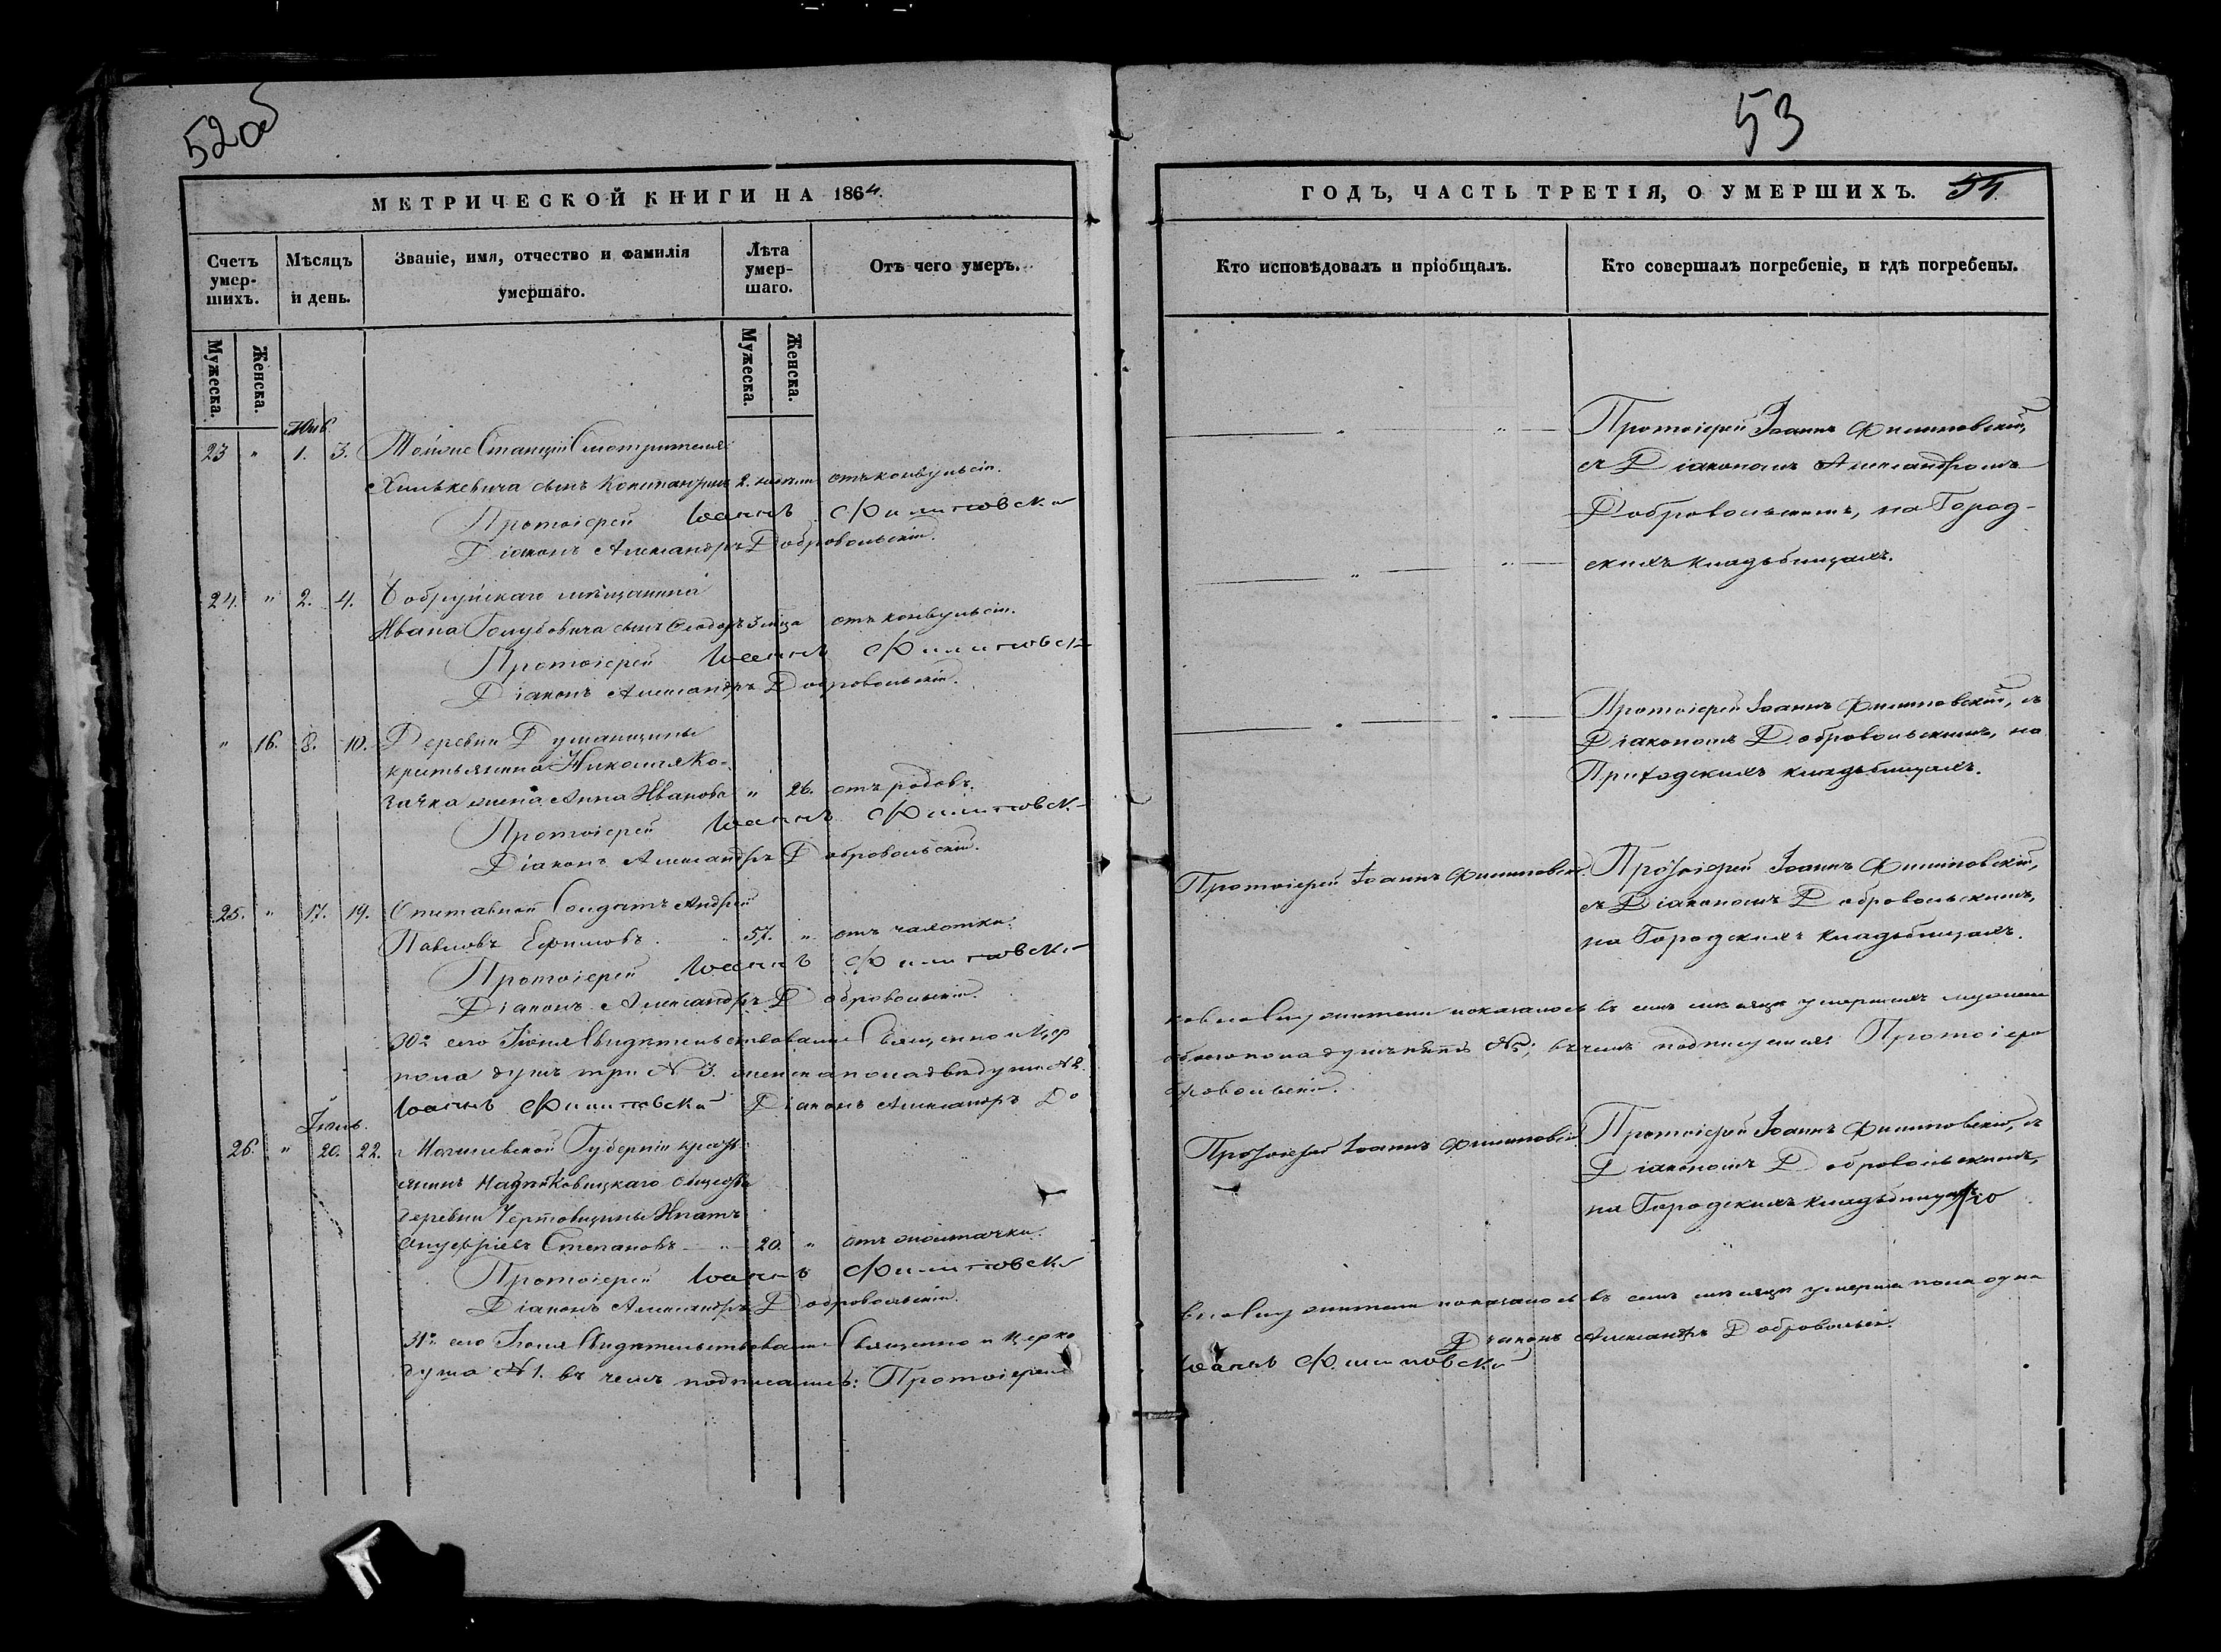 52об
МЕТРИЧЕСКОЙ КНИГИ НА 1864.
Счетъ умер-шихъ.
Мѣсяцъ и день.
Званіе, имя, отчество и фамилія умершаго.
Лѣта умер-шаго.
Отъ чего умеръ.
Мужеска.
Женска.
Мужеска.
Женска.
23 " 1. 3. Станціи Смотрителя
сынъ 2. недѣли отъ конвульсіи.
Протоіерей Іоаннъ Филиповскій
Діаконъ Александръ Добровольскій.
24. " 2. 4. Бобруйскаго мѣщанина
Ивана Голубовича сынъ Ѳеодоръ 3 мѣс отъ конвульсіи.
Протоіерей Іоаннъ Филиповскій
Діаконъ Александръ Добровольскій.
" 16. 8. 10. Деревни Думанщины
крестьянина Николая Ко-
жена Анна Иванова " 26. отъ родовъ.
Протоіерей Іоаннъ Филиповск
Діаконъ Александръ Добровольскій.
25. " 17. 19. Отставной Солдатъ Андрей
Павловъ Ефимовъ. 57. " отъ чахотки.
Протоіерей Іоаннъ Филиповск
Діаконъ Александръ Добровольскій.
30го сего Іюня Свидѣтельствовали Священно и Цер
пола душъ три № 3. женска пола двѣ души № 2.
Іоаннъ Филиповскій Діаконъ Александръ До
Іюль.
26. " 20. 22. Могилевской Губерніи кресть-
янинъ общества
деревни Чертовщины Игнатъ
Степановъ " 20. " отъ
Протоіерей Іоаннъ Филиповск
Діаконъ Александръ Добровольскій.
31го сего Іюля Свидѣтельствовали Священно и Церко
душа № 1. въ чемъ подписались: Протоіерей
53
ГОДЪ, ЧАСТЬ ТРЕТІЯ, О УМЕРШИХЪ. 54.
Кто исповѣдовалъ и пріобщалъ.
Кто совершалъ погребеніе, и гдѣ погребены.
Протоіерей Іоаннъ Филиповскій,
съ Діакономъ Александромъ
Добровольскимъ, на Город-
скихъ кладьбищахъ.
Протоіерей Іоаннъ Филиповскій, съ
Діакономъ Добровольскимъ, на
Приходскихъ кладьбищахъ.
Протоіерей Іоаннъ Филиповскій. Протоіерей Іоаннъ Филиповскій,
съ Діакономъ Добровольскимъ,
на Городскихъ кладьбищахъ.
ковнослужители показалось въ семъ мѣсяцѣ умершихъ мужеска
обоего пола душъ пять № 5; въ чемъ подписуемся: Протоіерей
бровольскій.
Протоіерей Іоаннъ Филиповскій Протоіерей Іоаннъ Филиповскій, съ
Діакономъ Добровольскимъ,
на Городскихъ кладьбищахъ
внослужители показалось въ семъ мѣсяцѣ умерша пола одна
Діаконъ Александръ Добровольскі.
Іоаннъ Филиповскій